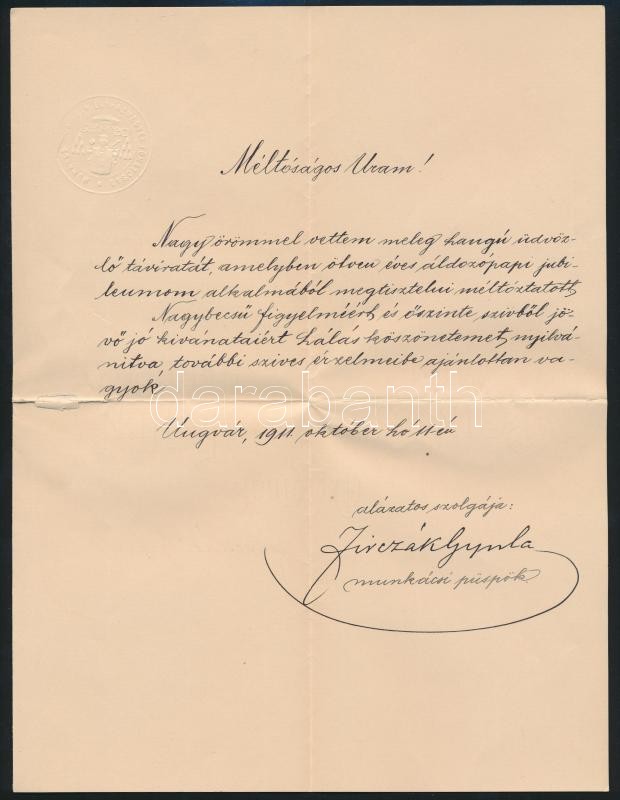 Méltóságos Uram!
Nagy örömmel vettem meleg hangú üdvöz-
lő táviratát, amelyben ötven éves áldozópapi jubi-
leumom alkalmából megtisztelni méltóztatott.
Nagybecsű figyelméért és őszinte, szivből jö-
vő jó kivánataiért hálás köszönetemet nyilvá-
nitva, további szives érzelmeibe ajánlottan va-
gyok
Ungvár, 1911. október hó 11én
alázatos szolgája:
Firczák Gyula
munkácsi püspök.
darabanth